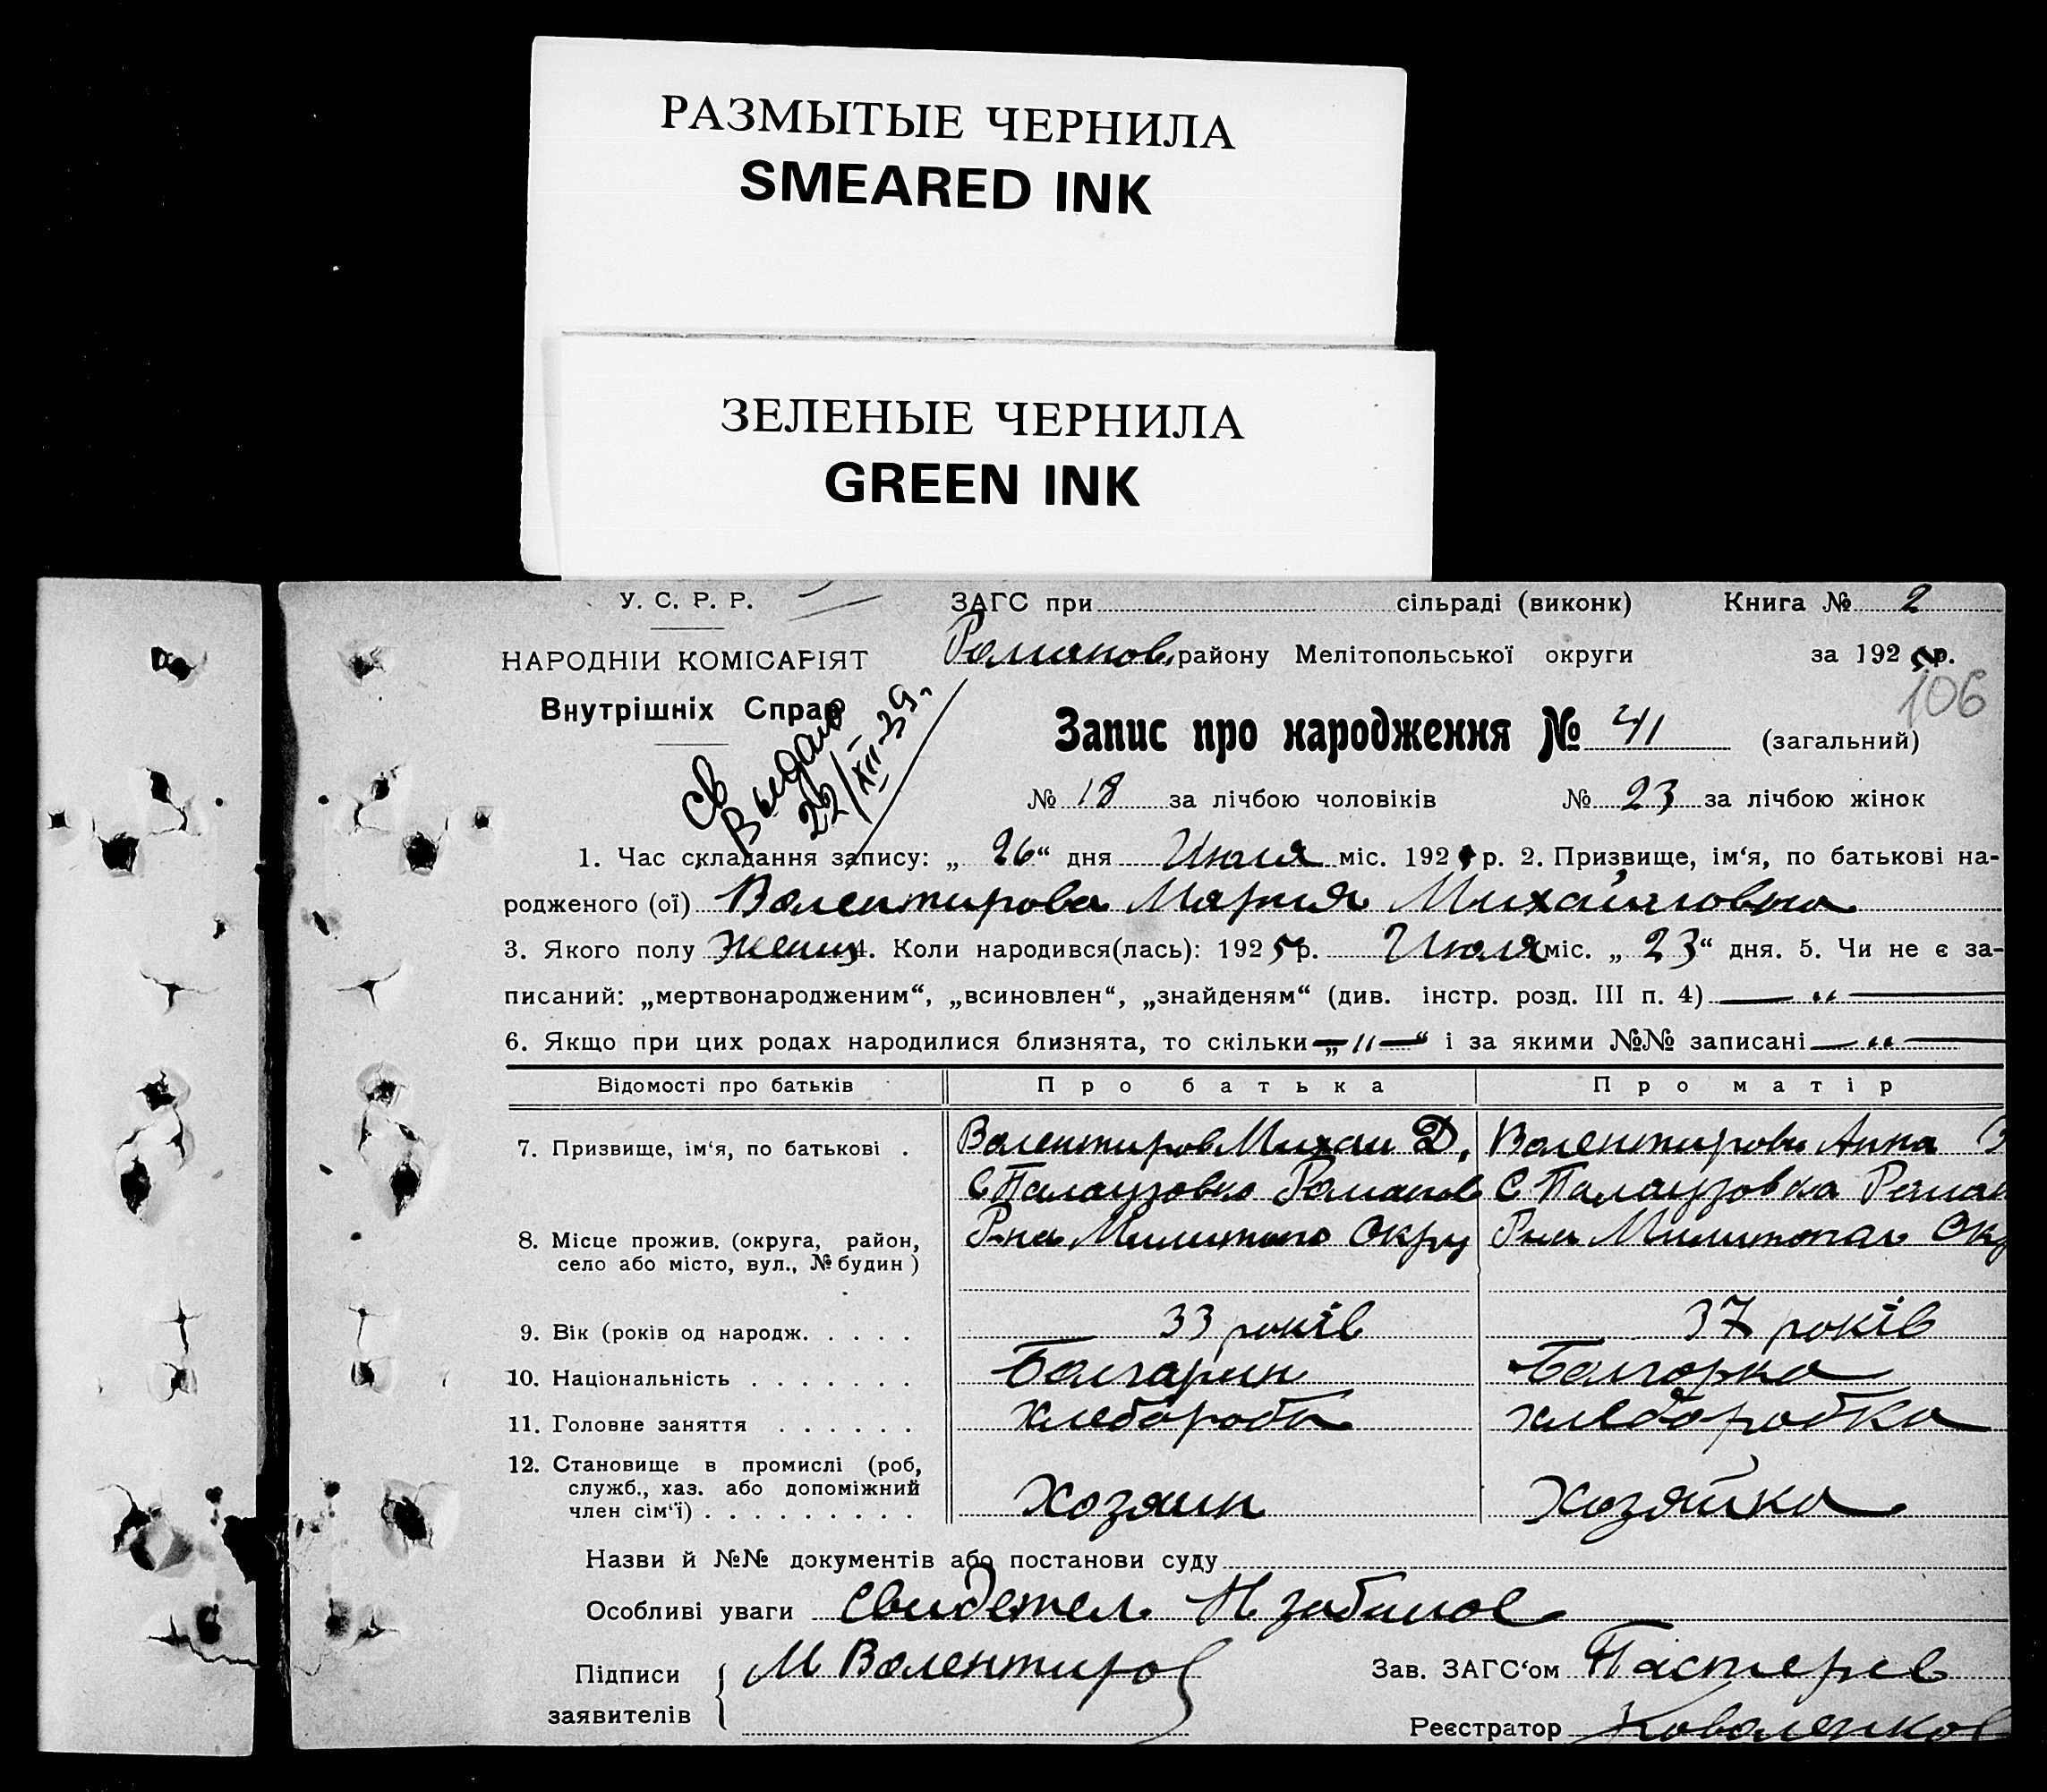 РАЗМЫТЫЕ ЧЕРНИЛА
SMEARED INK
ЗЕЛЕНЫЕ ЧЕРНИЛА
GREEN INK
У. С. Р. Р.
НАРОДНІИ КОМІСАРІЯТ
Внутрішніх Справ
ЗАГС при сільраді (виконк) Книга № 2
Романов. району Мелітопольської округи за 192 р.
106
Св
Выдано
22/XII-39г.
Запис про народження № 41 (загальний)
№ 18 за лічбою чоловіків № 23 за лічбою жінок
1. Час складання запису: „ 26 “ дня Июля міс. 192 р. 2. Призвище, ім‘я, по батькові на-
родженого (ої) Валентирова Мария Михайловна
3. Якого полу Женщ 4. Коли народився(лась): 1925 р. Июля міс. „ 23 “ дня. 5. Чи не є за-
писаний: „мертвонародженим“, „всиновлен“, „знайденям“ (див. інстр. розд. III п. 4) — „ —
6. Якщо при цих родах народилися близнята, то скільки — „ — і за якими №№ записані — „ —
Відомості про батьків Про батька Про матір
7. Призвище, ім‘я, по батькові . Валентиров Михаи Д. Валентирова Анна
С Палаузовка Романов С Палаузовка Роман
8. Місце прожив. (округа, район, село або місто, вул., № будин ) Р-на Милитопо Окру Р-на Милитопол Окр
9. Вік (років од народж. . . . . 33 років 37 років
10. Національність . . . . . . . Болгарин Болгорка
11. Головне заняття . . . . . . Хлебороба хлеборобка
12. Становище в промислі (роб, служб., хаз. або допоміжний член сім‘ї) . . . . . . . . . Хозяин Хозяйка
Назви й №№ документів або постанови суду
Особливі уваги Свидетел Н
Підписи заявителів М Валентиров
Зав. ЗАГС‘ом Пастерев
Реєстратор Коваленков